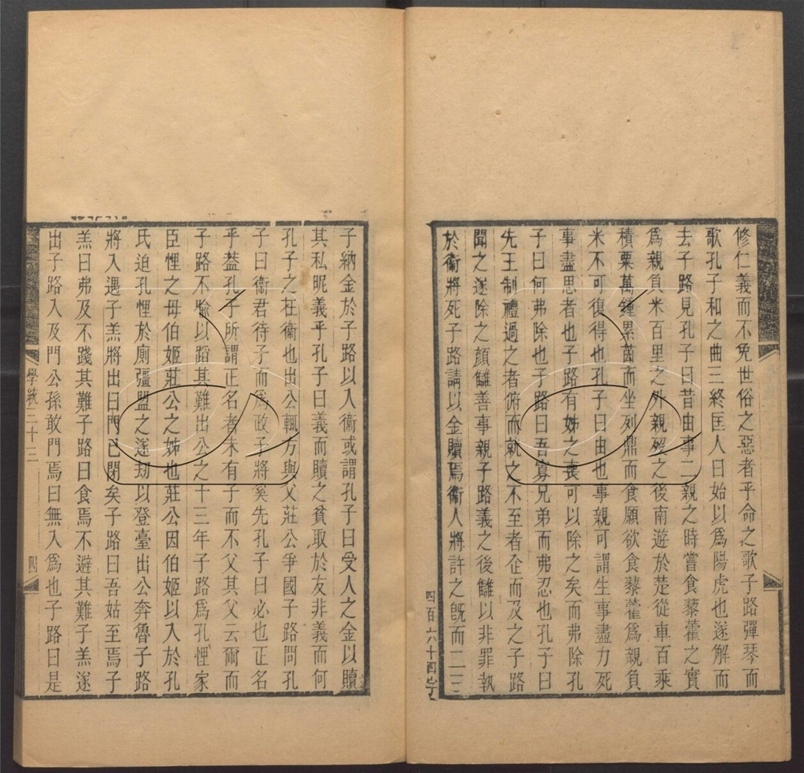 修仁義而不免世俗之惡者乎命之歌子路彈琴而
歌孔子和之曲三終匡人曰始以爲陽虎也遂解而
去子路見孔子曰昔由事二親之時嘗食藜藿之實
爲親負米百里之外親歿之後南遊於楚從車百乘
積粟萬鍾累茵而坐列鼎而食願欲食藜藿爲親負
米不可復得也孔子曰由也事親可謂生事盡力死
事盡思者也子路有姊之喪可以除之矣而弗除孔
子曰何弗除也子路曰吾寡兄弟而弗忍也孔子曰
先王制禮過之者俯而就之不至者企而及之子路
聞之遂除之顏讎善事親子路義之後讎以非罪執
於衞將死子路請以金贖焉衞人將許之旣而二三
四百六十四
子納金於子路以入衞或謂孔子曰受人之金以贖
其私昵義乎孔子曰義而贖之貧取於友非義而何
孔子之在衞也出公輒方與父莊公爭國子路問孔
子曰衞君待子而爲政子將奚先孔子曰必也正名
乎葢孔子所謂正名者未有子而不父其父云爾而
子路不喻以蹈其難出公之十三年子路爲孔悝家
臣悝之母伯姬莊公之姊也莊公因伯姬以入於孔
氏迫孔悝於廁彊盟之遂劫以登臺出公奔魯子路
將入遇子羔將出曰門已閉矣子路曰吾姑至焉子
羔曰弗及不踐其難子路曰食焉不避其難子羔遂
出子路入及門公孫敢門焉曰無入爲也子路曰是
學蔀三十三
四